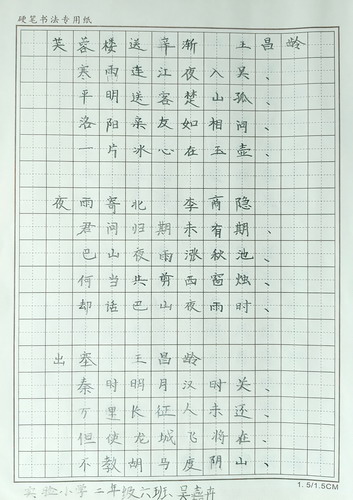 硬笔书法专用纸
芙蓉楼送辛渐 王昌龄
寒雨连江夜入吴、
平明送客楚山孤、
洛阳亲友如相问、
一片冰心在玉壶、
夜雨寄北 李商隐
君问归期未有期、
巴山夜雨涨秋池、
何当共剪西窗烛、
却话巴山夜雨时、
出塞 王昌龄
秦时明月汉时关、
万里长征人未还、
但使龙城飞将在、
不教胡马度阴山、
1.5/1.5CM
实验小学二年级六班、吴嘉卉